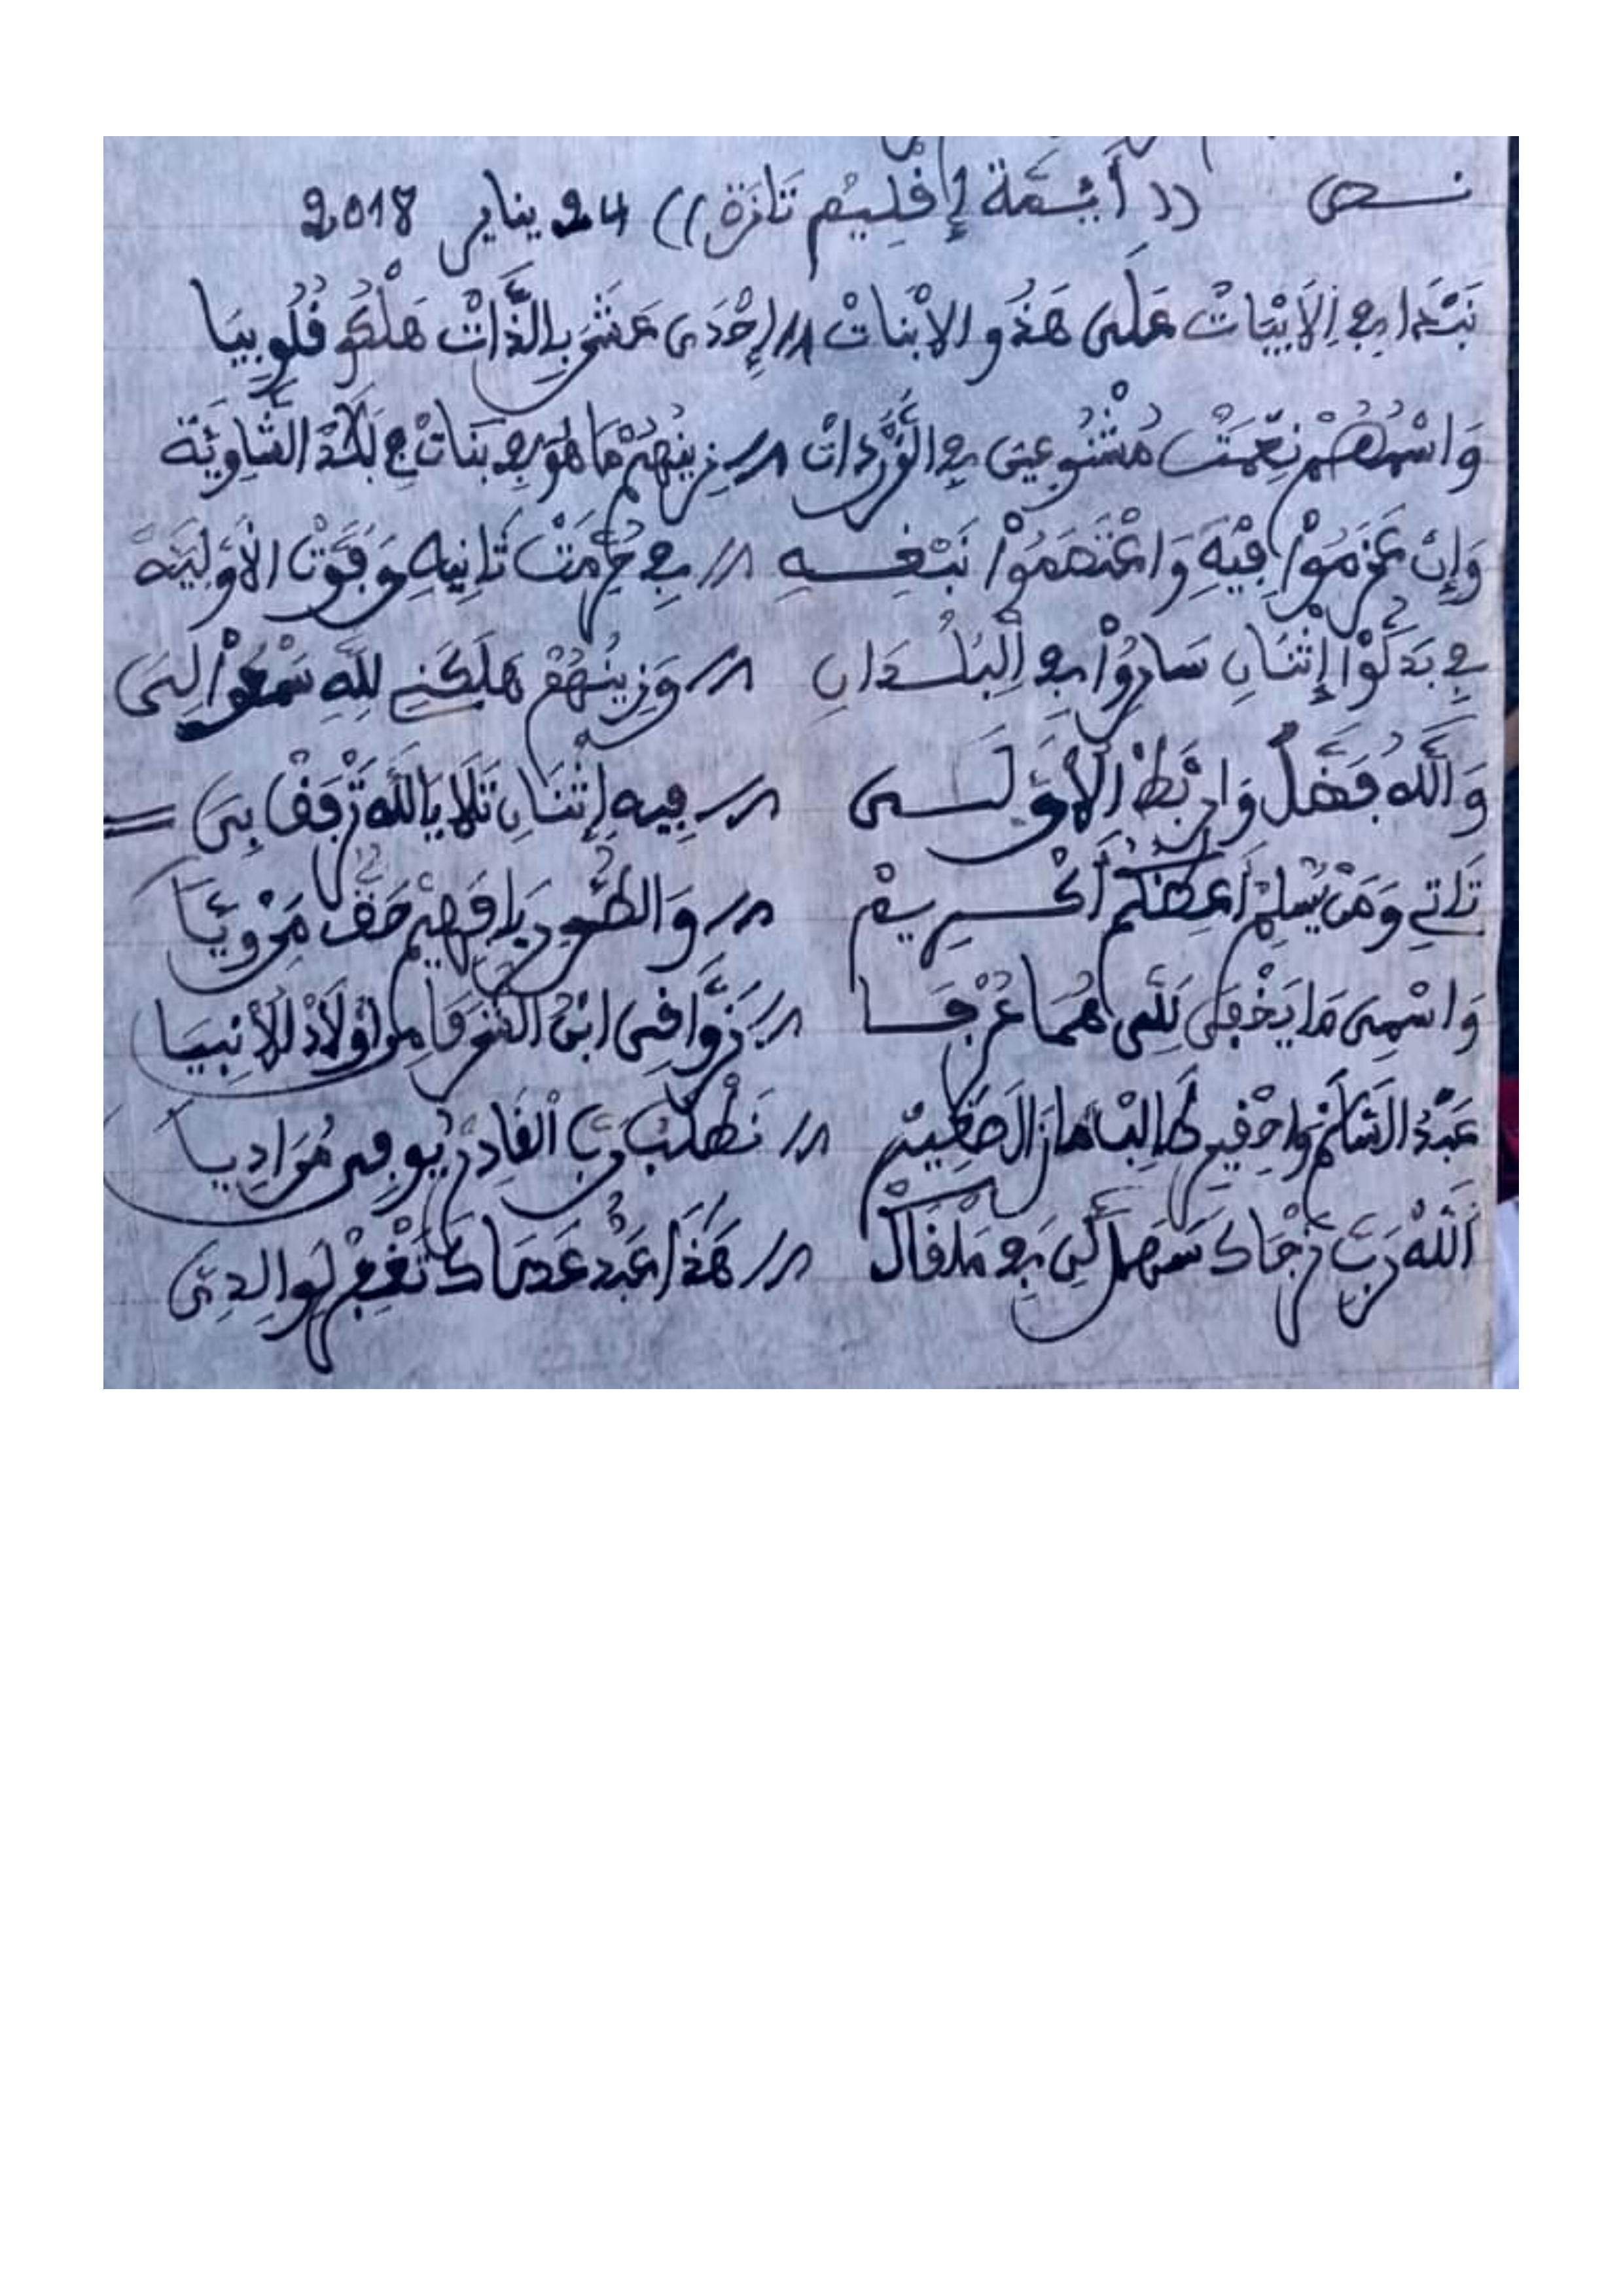 نص (( أَئِمَّة إِقْلِيمْ تَازَة )) 24 يناير 2018
نَبْدَا فِي الْأَبْيَاتْ عَلَى هَذُو الْأَبْنَاتْ // إِحْدَى عَشَرَ بِالذَّاتْ هَلْكُو قُلُوبِيَا
وَاسْمُهُمْ نِعْمَتْ مُتْنُوعِينَ فِي الْقُرْدَاتْ // زِينْهُمْ مَا هُوَ فِي بَنَاتْ فِي بَلَادْ الشَّاوِيَّة
وَإِنْ عَزْمُوْا فِيهِ وَاعْتَصْمُوْا نَبْغِيهِ // فِي ثَانِيهِ وَقَوْتْ الْأَوْلِيَّة
فِي بَدْلُوْا إِثْنَانِ سَارُوْا فِي الْبُلْدَانِ // وَزِينُهُمْ هَلَكْنِي لِلَّهِ سَمْعُوْا لِيَ
وَاللَّهُ فَضَّلْ وَارْبَطْ الْأَوْلَى // فِيهِ إِثْنَانِ تَلَا يَا اللَّه تَرْفَقْ بِيَ =
تَاتِي وَمَنْ يُسَلِمْ أَكْرِيمْ // وَالطُّور يَا فَهِيمْ حَقْ مَرْوِيَّا
وَاسْمِي مَا يَخْفَى لَلِّي هُمَا عُرْفَا // زَوَّاقِي ابْنُ الشُّرَفَا مِنْ أَوْلَادْ الْأَنْبِيَا
عَبْدُ السَّلَامْ وَاحْقِيرْ طَالِبْ مَازَالْ صَغِيرْ // نَطْلُبْ رَبِّ الْقَادِرْ يُوفِي مُرَادِيَا
اللَّهْ رَبِّ نَرْجَاكْ سَهَّلْ لِي فِي مَلْقَاكْ // هَذَا عَبْدْ عَصَاكْ تَغْفِرْ لِوَالِدِيَّ